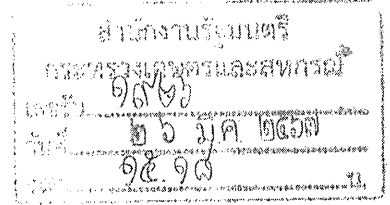 สำนักงานรัฐมนตรี
กระทรวงเกษตรและสหกรณ์
เลขรับ ๑๙๒๖
วันที่ ๒๖ มี.ค. ๒๕๖๗
เวลา ๑๕.๑๘ น.